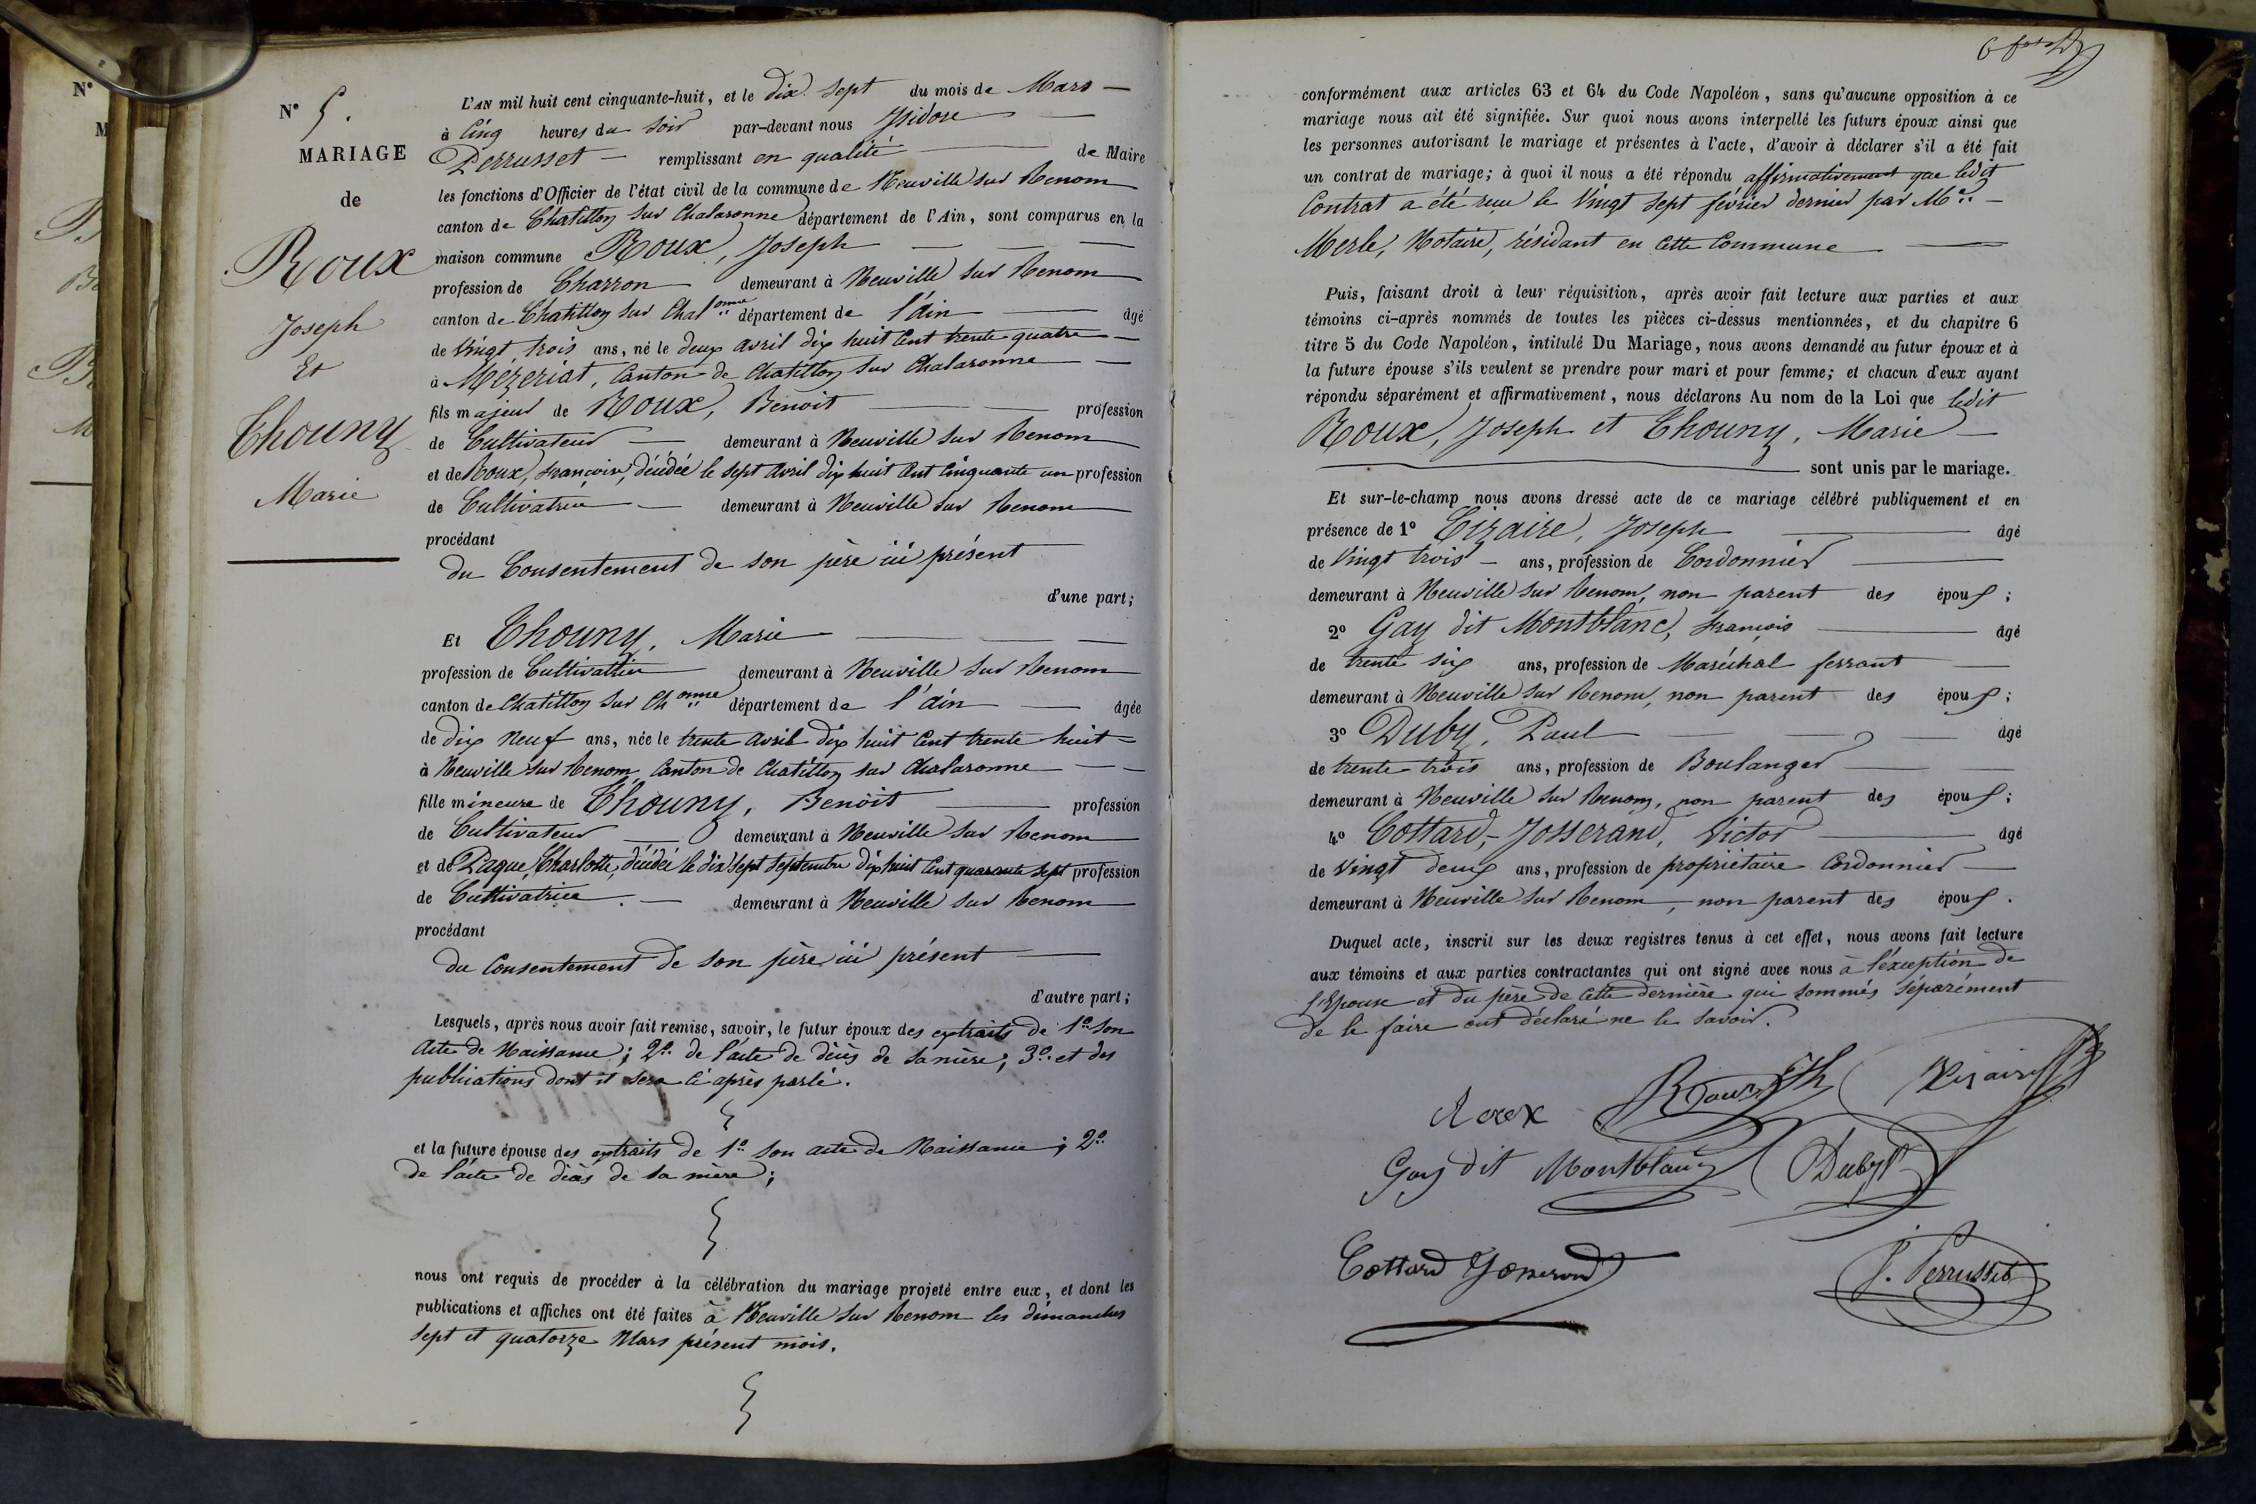 N° 5.
MARIAGE
de
Roux
Joseph
Et
Chouny
Marie
L'AN mil huit cent cinquante-huit, et le dix sept du mois de Mars
à Cinq heures du Soir par-devant nous Isidore
Perrusset remplissant en qualité de Maire
les fonctions d'Officier de l'état civil de la commune de Neuville sur Renom
canton de Chatillon sur Chalaronne département de l'Ain, sont comparus en la
maison commune Roux, Joseph
profession de Charron demeurant à Neuville sur Renom
canton de Chatillon sur Chal.onne département de l'ain âgé
de Vingt trois ans, né le deux avril dix huit Cent trente quatre
à Mezeriat, Canton de Chatillon sur Chalaronne
fils majeur de Roux, Benoit profession
de Cultivateur demeurant à Neuville sur Renom
et de Roux, françoise, décédée le sept avril dix huit Cent Cinquante un profession
de Cultivatrice demeurant à Neuville sur Renom
procédant
du Consentement de son père ici présent
d'une part;
Et Chouny, Marie
profession de Cultivatrice demeurant à Neuville sur Renom
canton de Chatillon sur Ch.onne département de l'ain âgée
de dix Neuf ans, née le trente avril dix huit Cent trente huit
à Neuville sur Renom, Canton de Chatillon sur Chalaronne
fille mineure de Chouny, Benoit profession
de Cultivateur demeurant à Neuville sur Renom
et de Paque, Charlotte, décédée le dix sept Septembre dix huit Cent quarante sept profession
de Cultivatrice. demeurant à Neuville sur Renom
procédant
du Consentement de son père ici présent
d'autre part;
Lesquels, après nous avoir fait remise, savoir, le futur époux des extraits de 1° son
Acte de Naissance; 2° de l'acte de décès de sa mère; 3° et des
publications dont il sera ci après parlé.
et la future épouse des extraits de 1° son acte de Naissance; 2°
de l'acte de décès de sa mère;
nous ont requis de procéder à la célébration du mariage projeté entre eux, et dont les
publications et affiches ont été faites à Neuville sur Renom les dimanches
sept et quatorze Mars présent mois.
conformément aux articles 63 et 64 du Code Napoléon, sans qu'aucune opposition à ce
mariage nous ait été signifiée. Sur quoi nous avons interpellé les futurs époux ainsi que
les personnes autorisant le mariage et présentes à l'acte, d'avoir à déclarer s'il a été fait
un contrat de mariage; à quoi il nous a été répondu affirmativement que ledit
Contrat a été reçu le Vingt sept février dernier par Me
Merle, Notaire, résidant en Cette Commune
Puis, faisant droit à leur réquisition, après avoir fait lecture aux parties et aux
témoins ci-après nommés de toutes les pièces ci-dessus mentionnées, et du chapitre 6
titre 5 du Code Napoléon, intitulé Du Mariage, nous avons demandé au futur époux et à
la future épouse s'ils veulent se prendre pour mari et pour femme; et chacun d'eux ayant
répondu séparément et affirmativement, nous déclarons Au nom de la Loi que ledit
Roux, Joseph et Chouny, Marie
sont unis par le mariage.
Et sur-le-champ nous avons dressé acte de ce mariage célébré publiquement et en
présence de 1° Cizaire, Joseph âgé
de Vingt trois ans, profession de Cordonnier
demeurant à Neuville sur Renom, non parent des époux;
2° Gay dit Montblanc, françois âgé
de trente six ans, profession de Maréchal ferrant
demeurant à Neuville sur Renom, non parent des époux;
3° Duby, Paul âgé
de trente trois ans, profession de Boulanger
demeurant à Neuville sur Renom, non parent des époux;
4° Cottard-Josserand, Victor âgé
de Vingt deux ans, profession de propriétaire Cordonnier
demeurant à Neuville sur Renom, non parent des époux.
Duquel acte, inscrit sur les deux registres tenus à cet effet, nous avons fait lecture
aux témoins et aux parties contractantes qui ont signé avec nous à l'éxception de
l'Epouse et du père de Cette dernière qui sommés séparément
de le faire ont déclaré ne le Savoir.
Roux
Gay dit Montblanc
Duby P
Cottard Josserand
J. Perrusset